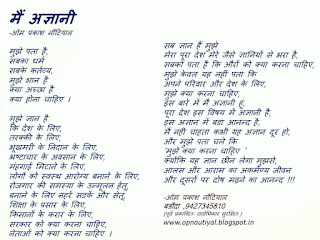 मैं अज्ञानी
-ओम प्रकाश नौटियाल
मुझे पता है,
सबका धर्म
सबके कर्तव्य,
मुझे भान है
क्या अच्छा है
क्या होना चाहिए ।
मुझे ज्ञान है
कि देश के लिए,
तरक्की के लिए,
भूखमरी के निदान के लिए,
भ्रष्टाचार के अवसान के लिए,
महंगाई मिटाने के लिए,
लोगों को स्वस्थ आरोग्य बनाने के लिए,
रोजगार की समस्या के उन्मूलन हेतु,
बनाने के लिए नहरें सडकें और सेतु,
शिक्षा के प्रसार के लिए,
किसानों के करार के लिए,
सरकार को क्या करना चाहिए ,
नेताओं को क्या करना चाहिए ।
सब ज्ञान है मुझे
मेरा पूरा देश मेरे जैसे ज्ञानियों से भरा है,
सबको पता है कि औरों को क्या करना चाहिए,
मुझे केवल यह नहीं पता कि
अपने परिवार और देश के लिए,
मुझे क्या करना चाहिए,
इस बारे में मैं अज्ञानी हूं,
पूरा देश इस विषय में अज्ञानी है,
इस अज्ञान में बडा आनन्द है,
मैं नही चाहता कभी यह अज्ञान दूर हो,
और मुझे पता चले कि
'मुझे क्या करना चाहिए '
क्योंकि यह ज्ञान छीन लेगा मुझसे,
आलस और आराम का अकर्मण्य जीवन
और दूसरों पर दोष मढने का आनन्द !!!
-ओम प्रकाश नौटियाल
बडौदा , 9427345810
(पूर्व प्रकाशित- सर्वाधिकार सुरक्षित )
www.opnautiyal.blogspot.in